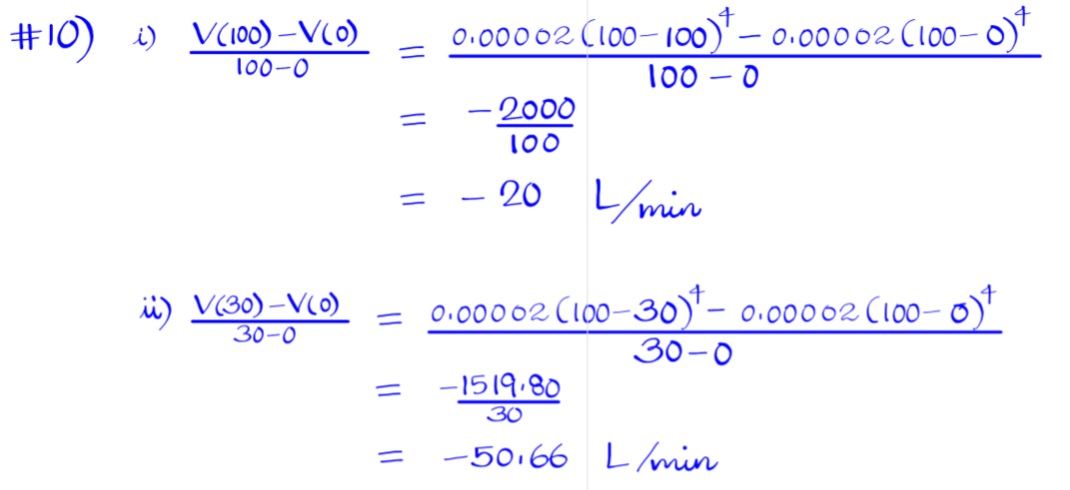 #10) i) V(100)-V(0)/100-0 = 0.00002(100-100)^4 - 0.00002(100-0)^4/100-0
= -2000/100
= -20 L/min
ii) V(30)-V(0)/30-0 = 0.00002(100-30)^4 - 0.00002(100-0)^4/30-0
= -1519.80/30
= -50.66 L/min